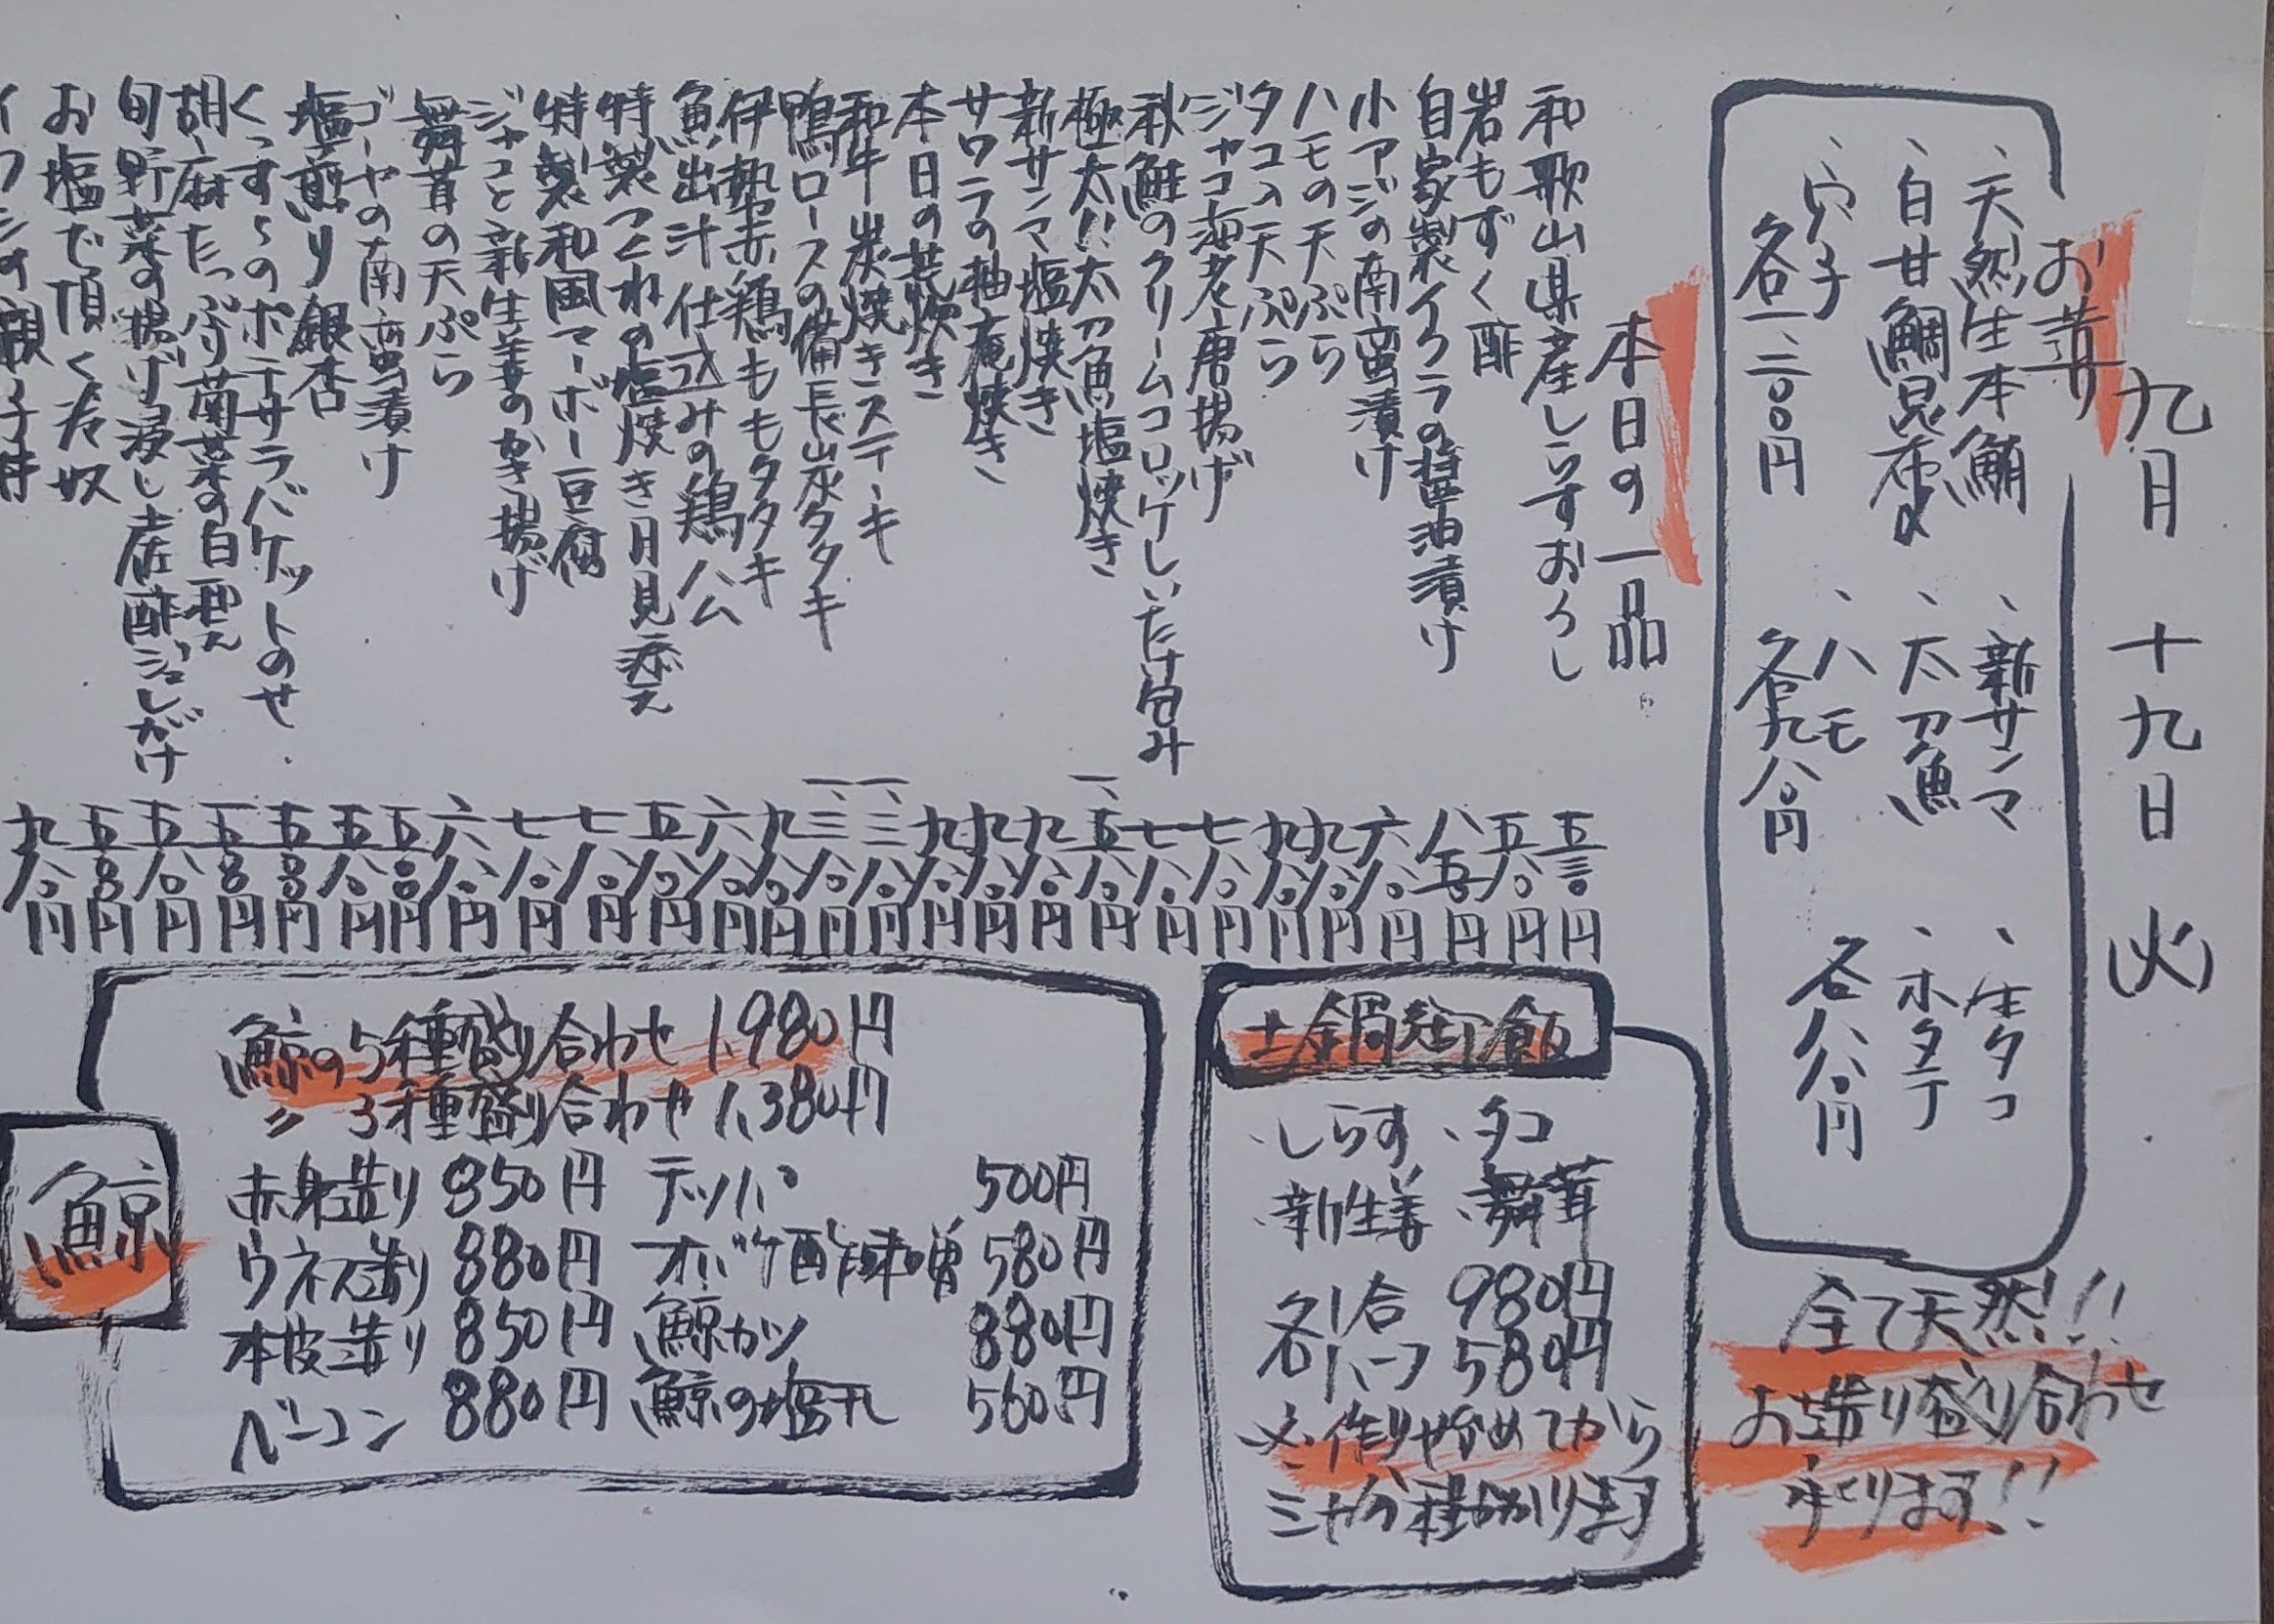 九月 十九日 (火)
お造り
、天然生本鮪 、新サンマ 、生タコ
、白甘鯛昆布〆 、太刀魚 、ホタテ
、穴子 、ハモ
各一、二〇〇円 各九八〇円 各八八〇円
全て天然!!
お造り盛り合わせ
承ります!!
本日の一品
和歌山県産しらすおろし 五三〇円
岩もずく酢 五八〇円
自家製イクラの醤油漬け 八五〇円
小アジの南蛮漬け 六八〇円
ハモの天ぷら 九八〇円
タコの天ぷら 九八〇円
ジャコ海老唐揚げ 七八〇円
秋鮭のクリームコロッケしいたけ包み 七八〇円
極太!!太刀魚塩焼き 一、五八〇円
新サンマ塩焼き 九八〇円
サワラの柚庵焼き 九八〇円
本日の荒炊き 九八〇円
和牛炭焼きステーキ 一、三八〇円
鴨ロースの備長炭タタキ 一、三八〇円
伊勢赤鶏ももタタキ 九八〇円
魚出汁仕込みの鶏ハム 六八〇円
特製つくねの塩焼き月見添え 五八〇円
特製和風マーボー豆腐 七八〇円
ジャコと新生姜のかき揚げ 七八〇円
舞茸の天ぷら 六八〇円
ゴーヤの南蛮漬け 五〇〇円
塩煎り銀杏 五八〇円
くっす〜のポテサラバケットのせ 五〇〇円
胡麻たっぷり菊菜の白和え 五〇〇円
旬野菜の揚げ浸し土佐酢ジュレがけ 五八〇円
お塩で頂く冷奴 五〇〇円
九八〇円
土鍋焚御飯
、しらす 、タコ
、新生姜 、舞茸
各1合 980円
各ハーフ 580円
※作り始めてから
三十分程かかります
鯨
鯨の5種盛り合わせ 1,980円
〃 3種盛り合わせ 1,380円
赤身造り 850円 テッパ 500円
ウネス造り 880円 オバケ酢味噌 580円
本皮造り 850円 鯨カツ 880円
ベーコン 880円 鯨の塩タレ 560円